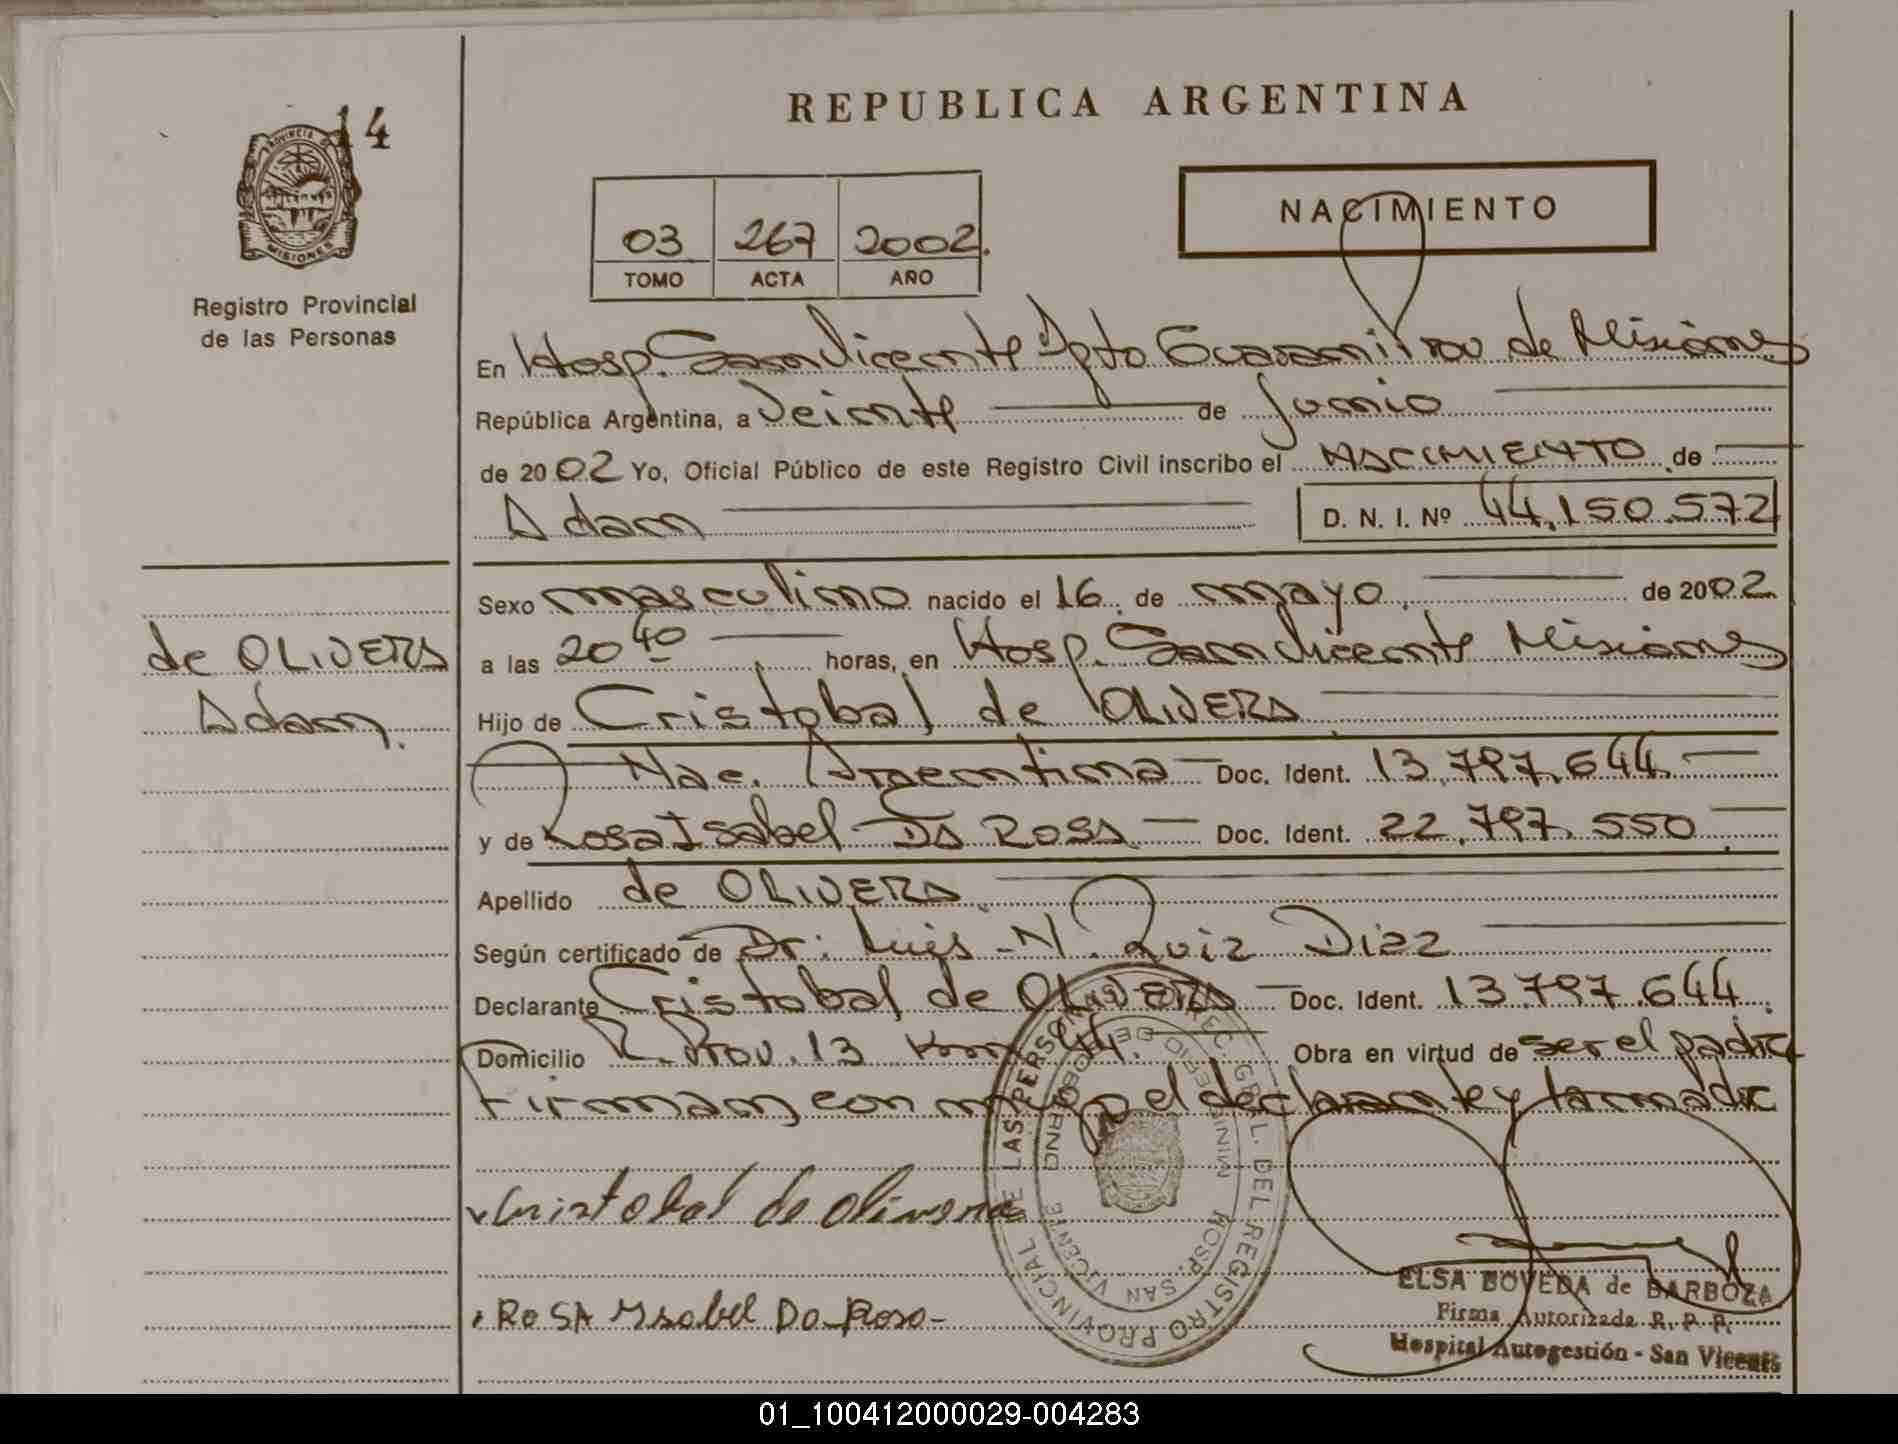 14
PROVINCIA DE
MISIONES
Registro Provincial
de las Personas
REPUBLICA ARGENTINA
03 267 2002.
TOMO ACTA AÑO
NACIMIENTO
En Hosp. San Vicente Dpto Guarani Prov de Misiones
República Argentina, a Veinte de Junio
de 2002 Yo, Oficial Público de este Registro Civil inscribo el NACIMIENTO de
Adam D. N. I. Nº 44.150.572
Sexo masculino nacido el 16 de mayo de 2002
de OLIVERA a las 20 40 horas, en Hosp. San Vicente Misiones
Adam. Hijo de Cristobal de OLIVERA
Nac. Argentina Doc. Ident. 13.797.644
y de Rosa Isabel DA ROSA Doc. Ident. 22.797.550
Apellido de OLIVERA
Según certificado de Dr: Luis N. Ruiz Diaz
Declarante Cristobal de OLIVERA Doc. Ident. 13797.644
Domicilio R. Prov. 13 Km 44. Obra en virtud de ser el padre
Firman con migo el declarante y la madre
Cristobal de olivera
ROSA Ysabel Da Rosa
REGISTRO PROVINCIAL DE LAS PERSONAS
MINISTERIO DE GOBIERNO
HOSP. SAN VICENTE
ELSA BOVEDA de BARBOZA
Firma Autorizada R. P. P.
Hospital Autogestión - San Vicente
01_100412000029-004283